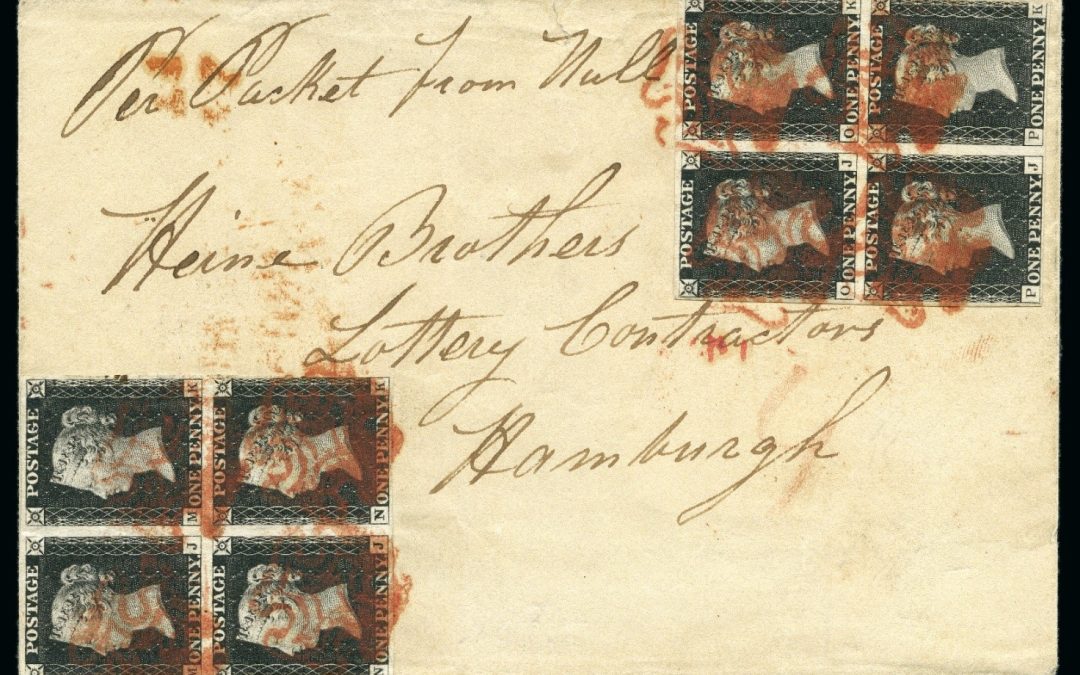 Per Packet from Hull
Heine Brothers
Lottery Contractors
Hamburgh
POSTAGE
ONE PENNY
O K
POSTAGE
ONE PENNY
P K
POSTAGE
ONE PENNY
O J
POSTAGE
ONE PENNY
P J
POSTAGE
ONE PENNY
M K
POSTAGE
ONE PENNY
N K
POSTAGE
ONE PENNY
M J
POSTAGE
ONE PENNY
N J